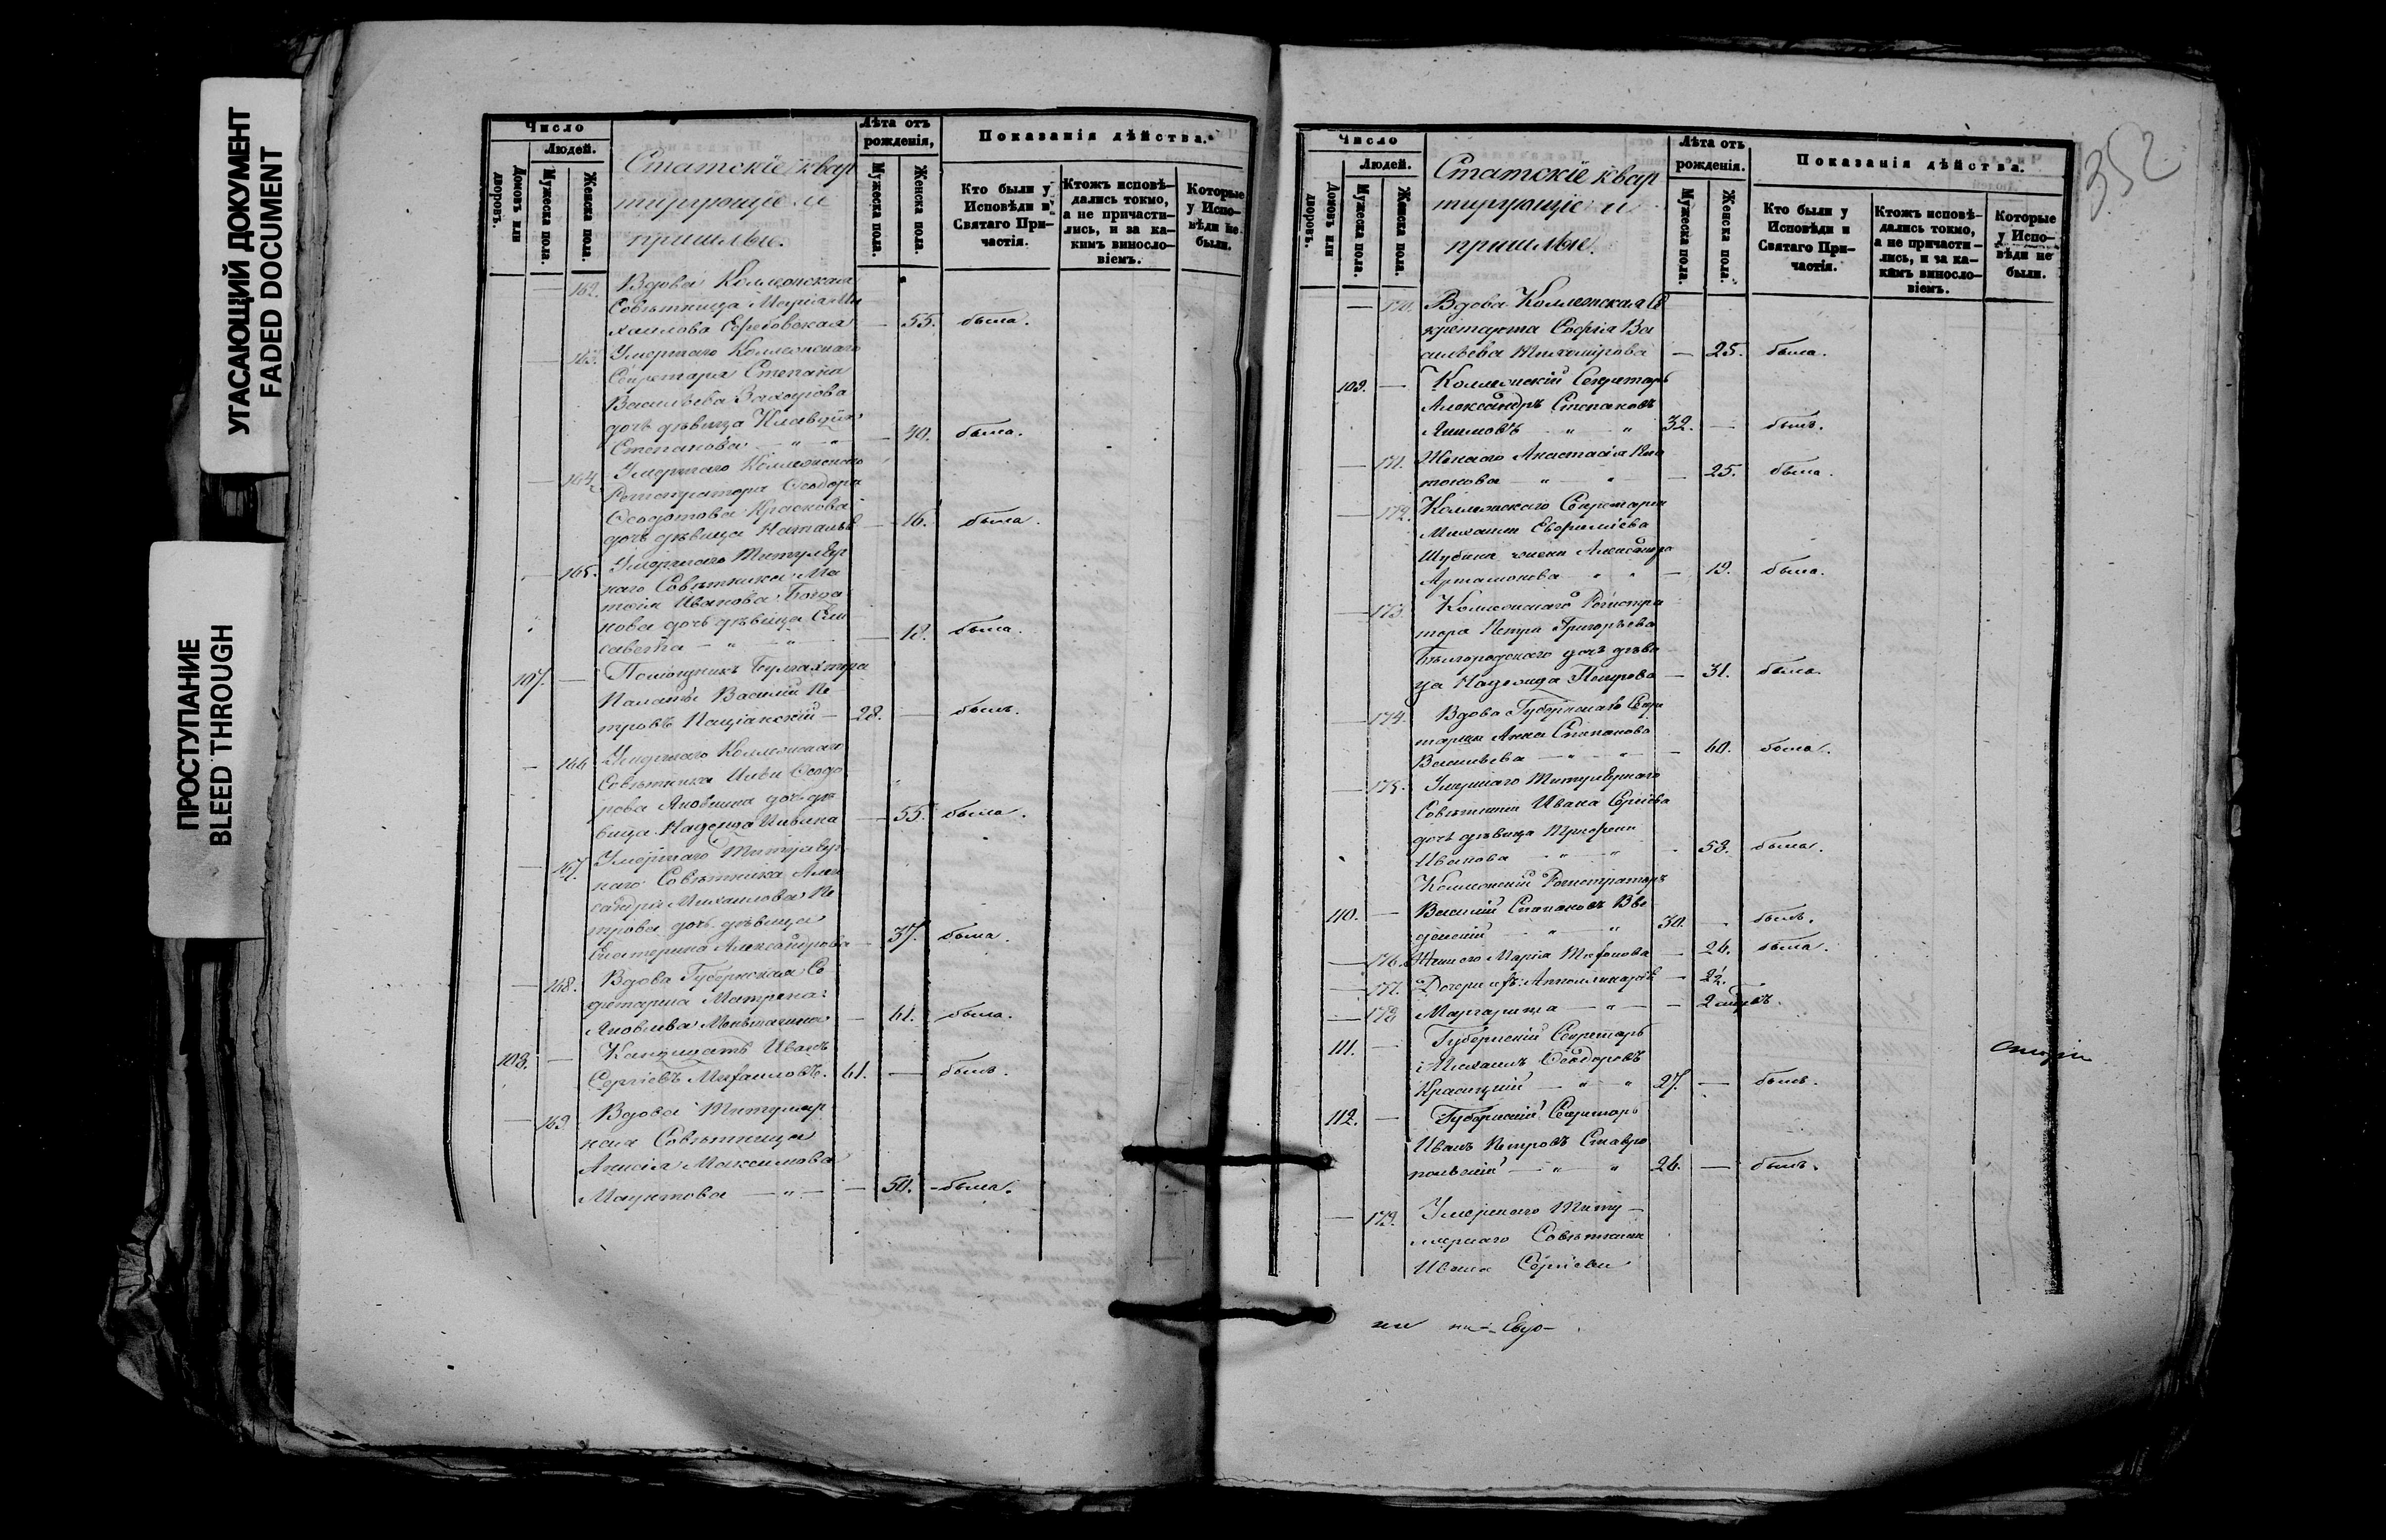 УГАСАЮЩИЙ ДОКУМЕНТ
FADED DOCUMENT
ПРОСТУПАНИЕ
BLEED THROUGH
Число
Людей.
Домовъ или дворовъ.
Мужеска пола.
Женска пола.
Статскіе квар
тирующіе и
пришлые.
Лѣта отъ рожденія,
Мужеска пола.
Женска пола.
Показанія дѣйства.
Кто были у Исповѣди и Святаго Причастія.
Ктожъ исповѣдались токмо, а не причастились, и за какимъ винословіемъ.
Которые у Исповѣди не были.
162. Вдова Коллежская
Совѣтница Марія Ми
хаилова 55. была.
163. Умершаго Коллежскаго
Секретаря Степана
Васильева Захарова
дочь дѣвица Клавдія
Степанова 40. была.
164. Умершаго Коллежскаго
Регистратора Ѳеодора
Ѳеодотова Краснова
дочь дѣвица Наталья 16. была.
165. Умершаго Титуляр
наго Совѣтника
Иванова
нова дочь дѣвица Ели
савета 18. была.
107. Помощникъ Бухгалтера
Палаты Василій Пе
тровъ 28. былъ.
166. Умершаго Коллежскаго
Совѣтника Ильи Ѳеодо
рова дочь дѣ
вица Надежда Ильина 55. была.
167. Умершаго Титуляр
наго Совѣтника Алек
сандра Михаилова Пе
трова дочь дѣвица
Екатерина Александрова 37. была.
168. Вдова Губернская Се
кретарша Матрена
Яковлева 61. была.
108. Иванъ
Сергіевъ 61. былъ.
169. Вдова Титуляр
ная Совѣтница
Максимова
50. была.
352
Число
Людей.
Домовъ или дворовъ.
Мужеска пола.
Женска пола.
Статскіе квар
тирующіе и
пришлые.
Лѣта отъ рожденія.
Мужеска пола.
Женска пола.
Показанія дѣйства.
Кто были у Исповѣди и Святаго Причастія.
Ктожъ исповѣдались токмо, а не причастились, и за какимъ винословіемъ.
Которые у Исповѣди не были.
170. Вдова Коллежская Се
кретарша Софія Ва
сильева Тихомірова 25. была.
109. Коллежскій Секретарь
Александръ Степановъ
32. былъ.
171. Жена его Анастасія Пла
тонова 25. была.
172. Коллежскаго Секретаря
Михаила Евфиміева
Шубина жена Александра
Артамонова 19. была.
173. Коллежскаго Регистра
тора Петра Григорьева
Бѣлгородскаго дочь дѣви
ца Надежда Петрова 31. была.
174. Вдова Губернскаго Секре
таря Анна Степанова
Васильева 60. была.
175. Умершаго Титулярнаго
Совѣтника Ивана Сергіева
дочь дѣвица
Иванова 58. была.
110. Коллежскій Регистраторъ
Василій Степановъ Вве
денскій 30. былъ.
176. Жена его Марія 26. была.
177. Дочери ихъ: Апполинарія 2½.
178. Маргарита 2
111. Губернскій Секретарь
Михаилъ Ѳеодоровъ
27. былъ.
112. Губернскій Секретарь
Иванъ Петровъ Ставро
польскій 26. былъ.
179. Умершаго Титу
лярнаго Совѣтника
Ивана Сергіева